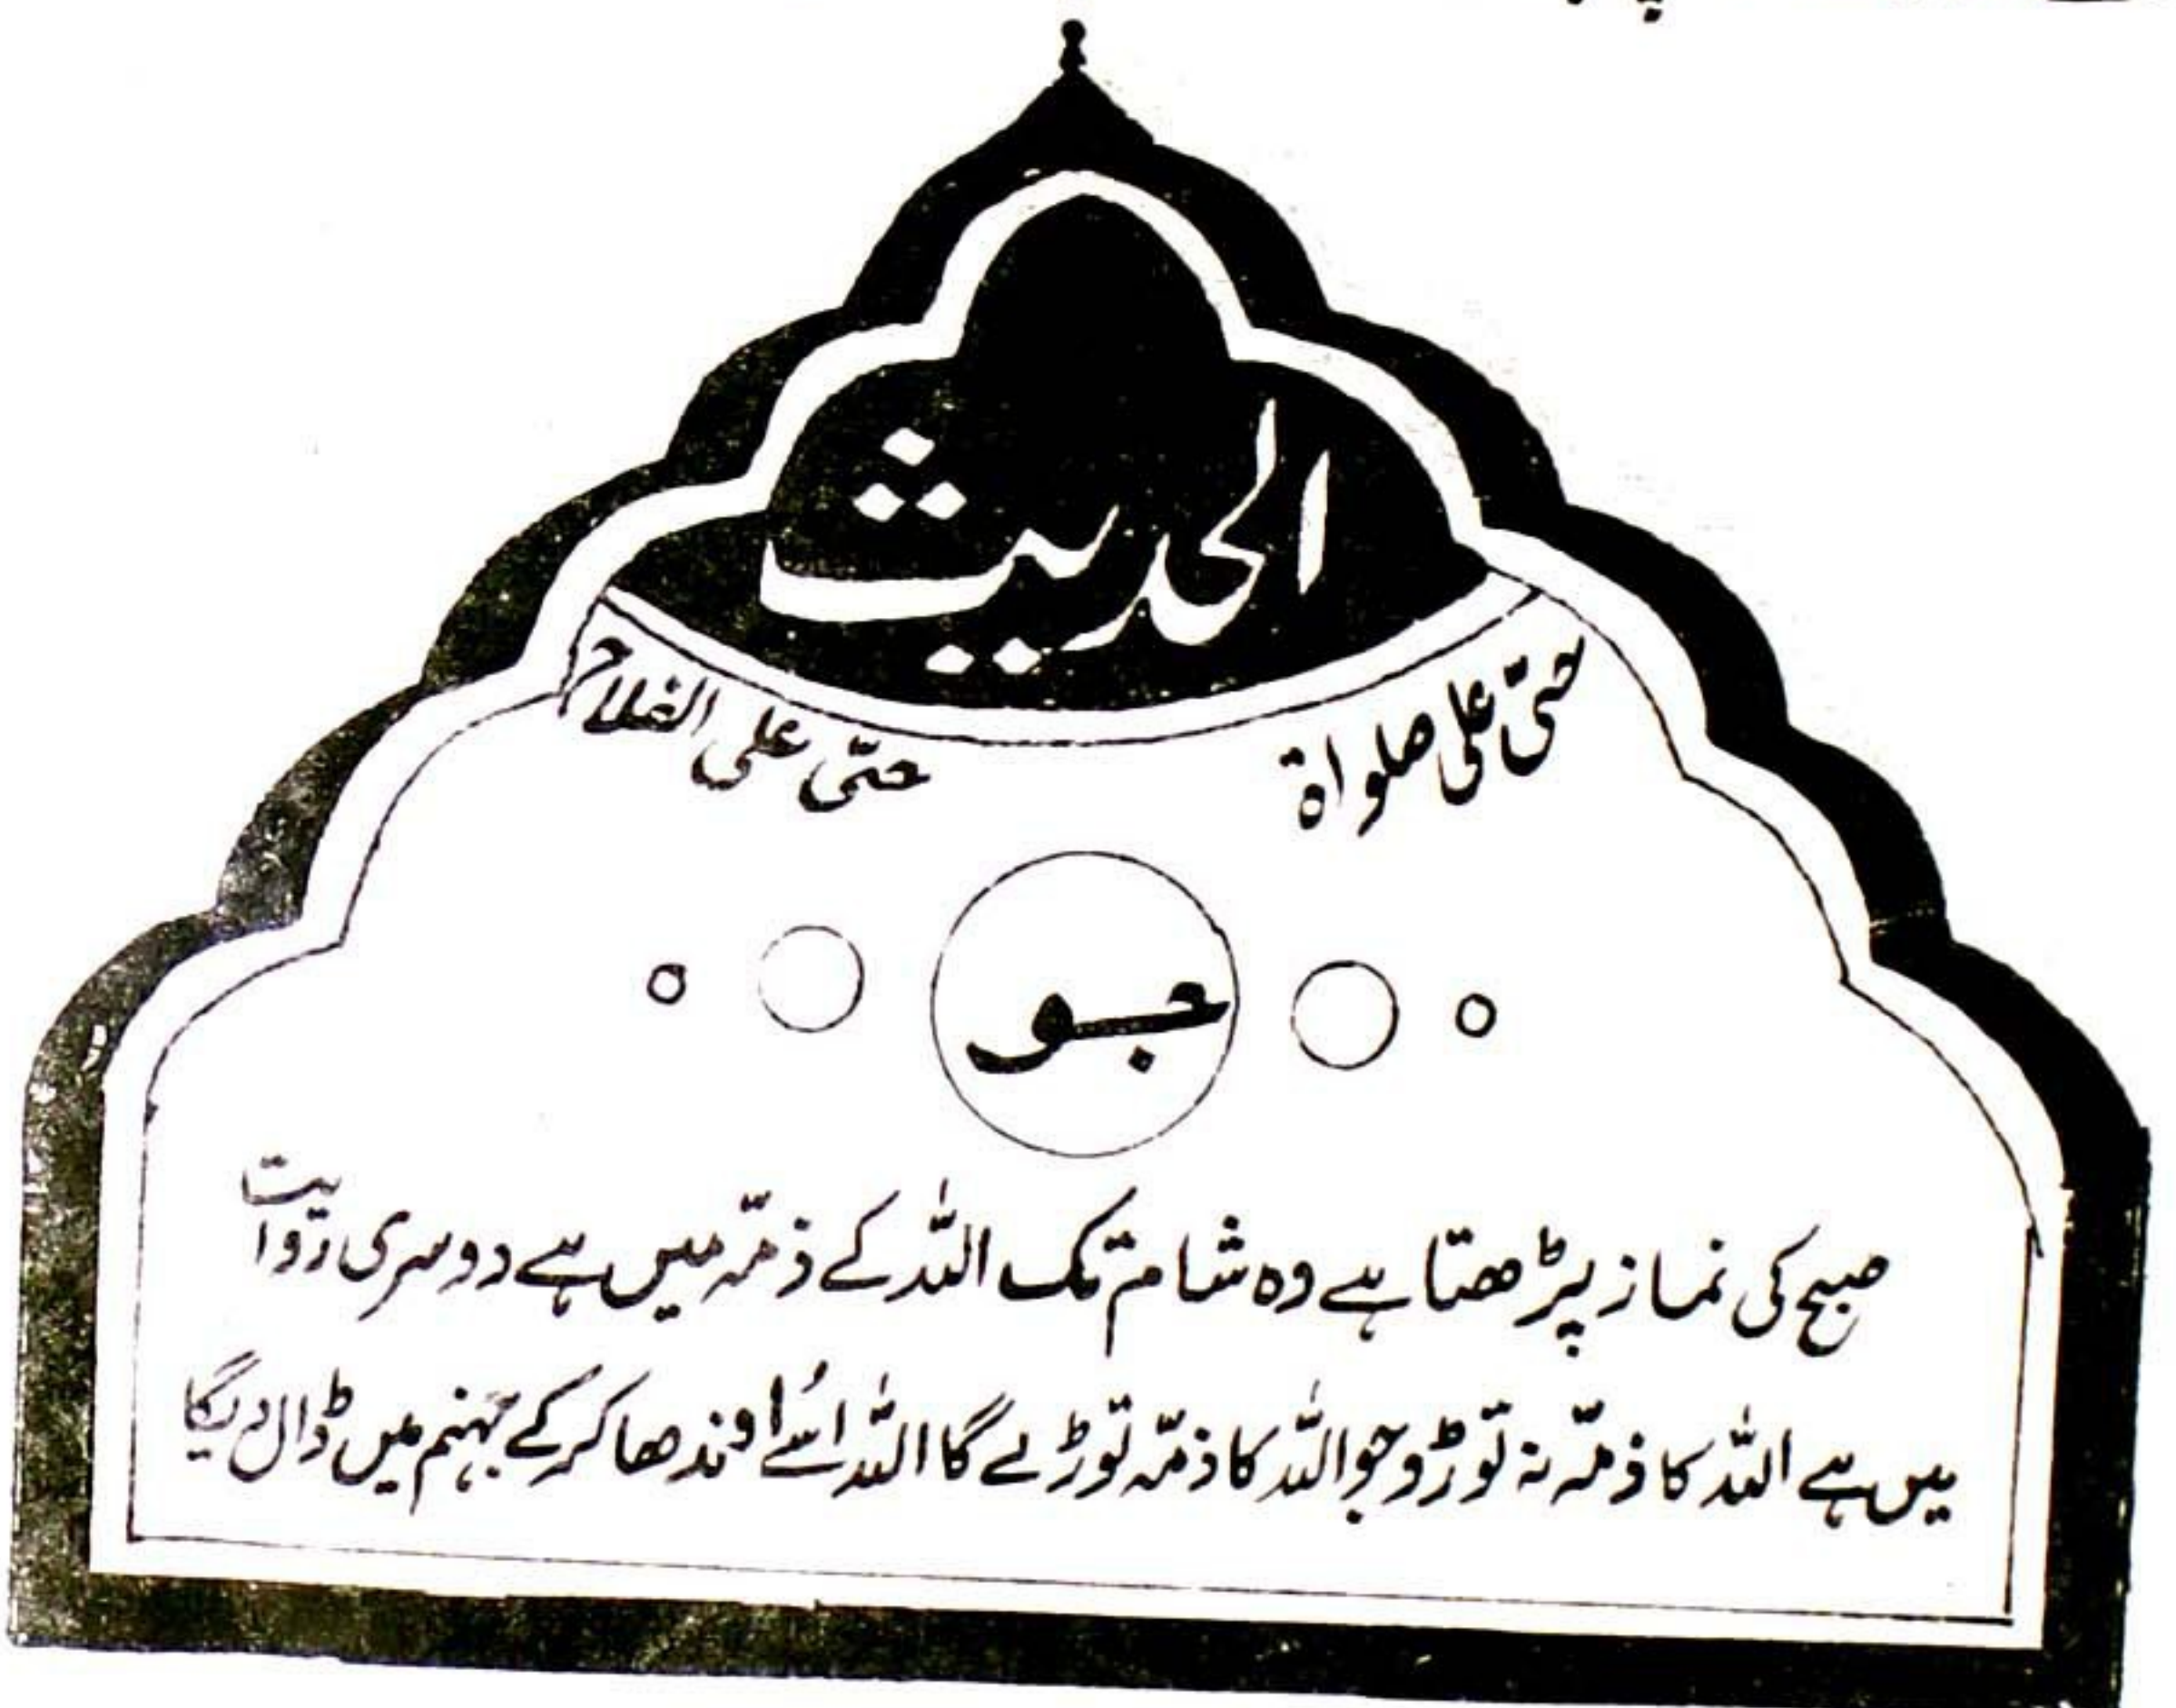 الحدیث
حتّی علی صلواة
حتّی علی الفلاح
جو
صبح کی نماز پڑھتا ہے وہ شام تک اللہ کے ذمّہ میں ہے دوسری روایت
میں ہے اللہ کا ذمّہ نہ توڑو جو اللہ کا ذمّہ توڑے گا اللہ اُسے اوندھا کر کے جہنم میں ڈال دیگا